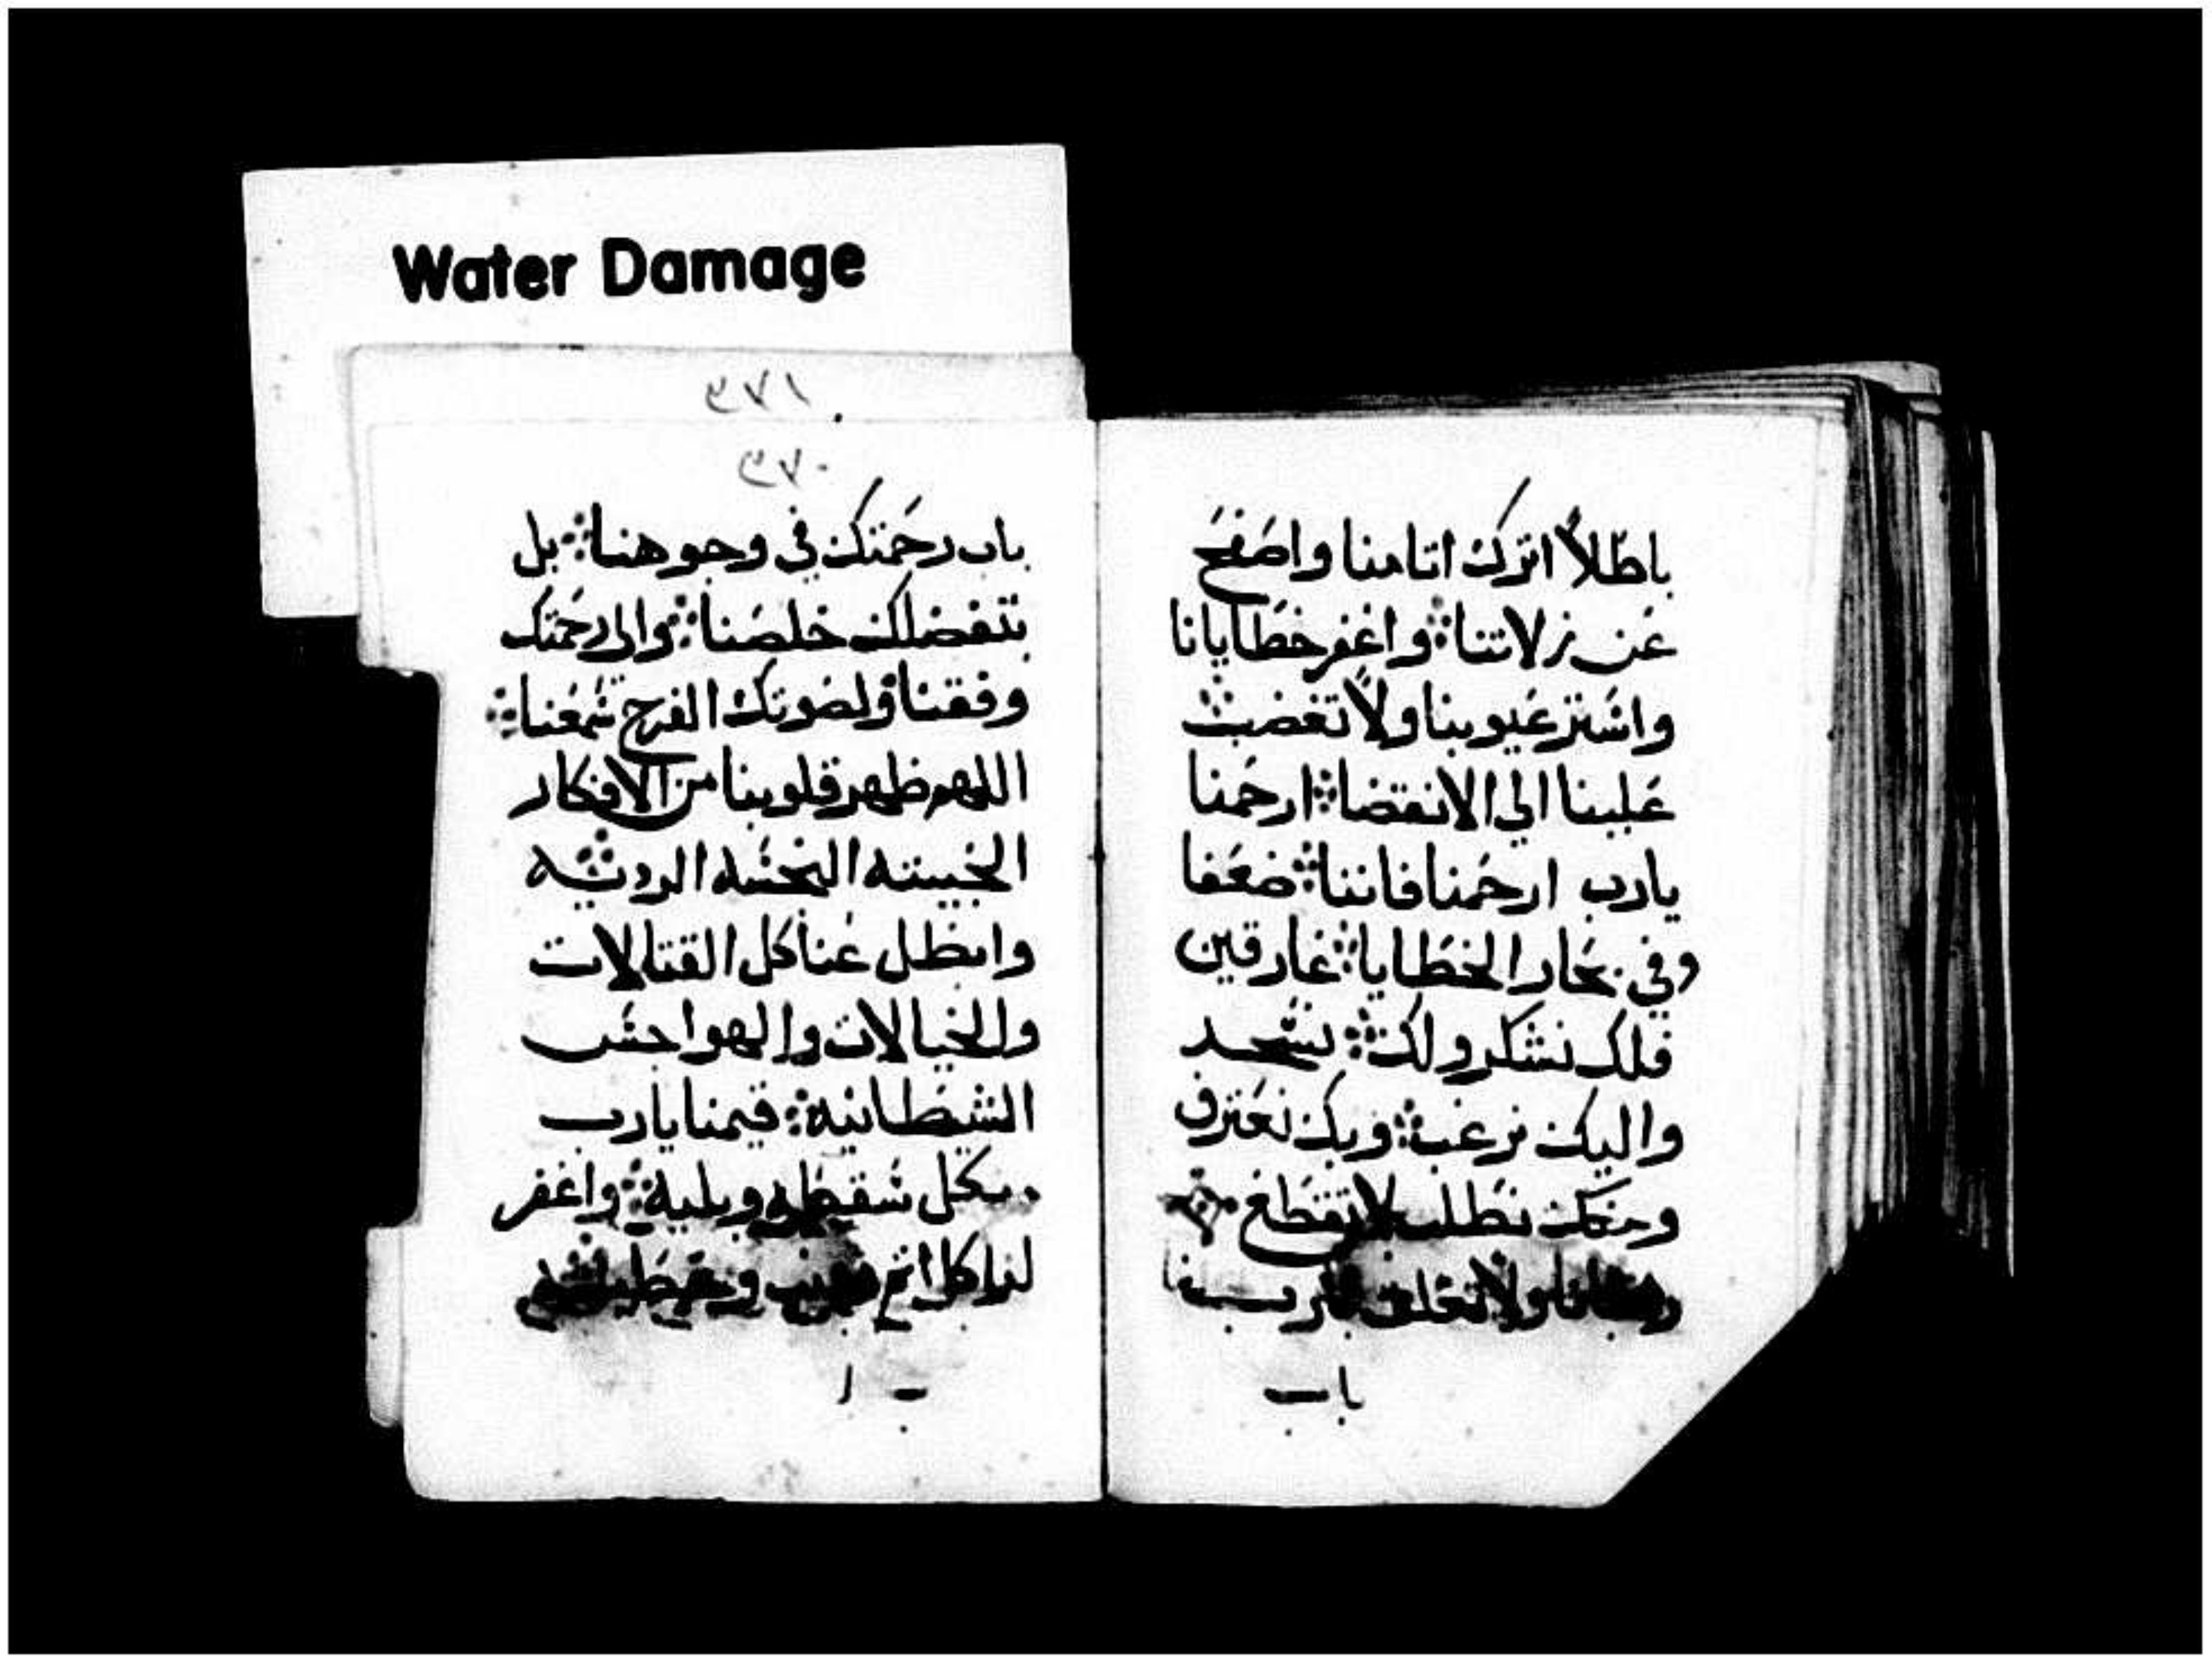 Water Damage
٣٧١
٣٧٠
باطلاً اترك اتامنا واصفح
عن زلاتنا واغفر خطايانا
واستر عيوبنا ولا تغضب
علينا الي الانقضا ارحمنا
يارب ارحمنا فاننا ضعفا
وفي بحار الخطايا غارقين
فلك نشكر ولك نسجد
واليك نرغب وبك نعترف
ومنك نطلب لا تقطع
ولا تغلق
باب
باب رحمتك في وجوهنا بل
بتفضلك خلصنا والي رحمتك
وفقنا ولصوتك الفرح سمعنا
اللهم طهر قلوبنا من الافكار
الخبيته النجسه الرديّه
وابطل عنا كل القتالات
والخيالات والهواجس
الشيطانيه قيمنا يارب
بكل سقطه وبليه واغفر
لنا كل اثم